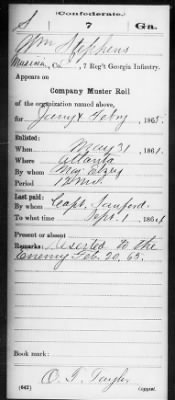 (Confederate.)
S 7 Ga.
Wm Stephens
Co. , 7 Reg't Georgia Infantry.
Appears on
Company Muster Roll
of the organization named above,
for Jany & Feby, 1865.
Enlisted:
When May 31, 1861.
Where Atlanta
By whom Maj. Elzey
Period 12 Mo.
Last paid:
By whom Capt. Sanford
To what time Sept. 1, 1864
Present or absent
Remarks: Deserted to the
enemy Feb. 20, 65.
Book mark:
O. T. Taylor
(642) Copyist.